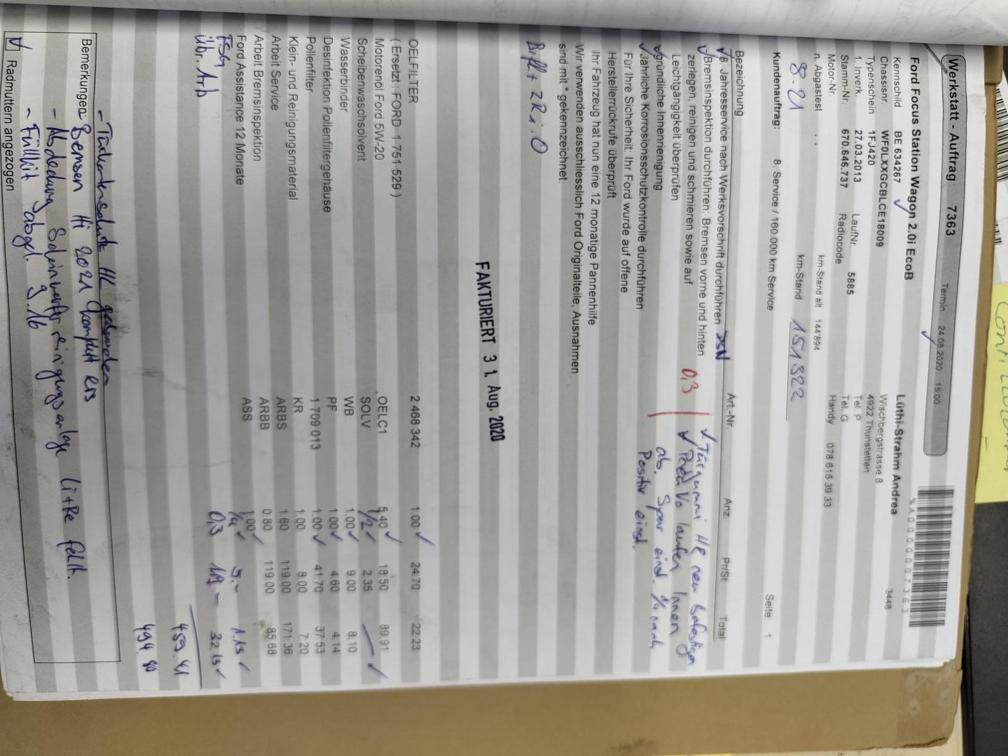 Werkstatt - Auftrag 7363
Termin 24.08.2020 15:00
Ford Focus Station Wagon 2.0i EcoB
Lüthi-Strahm Andrea
3448
Kennschild BE 634267
Wischbergstrasse 8
Chassisnr. WF0LXXGCBLCE18009
4922 Thunstetten
Typenschein 1FJ420
1. Inverk. 27.03.2013 LaufNr. 5885
Tel. P
Stamm-Nr. 670.646.737 Radiocode
Tel. G
Motor-Nr. km-Stand alt 144'894
Handy 078 615 39 33
n. Abgastest . . km-Stand 151322
8.21
Kundenauftrag: 8. Service / 160.000 km Service
Seite 1
Bezeichnung Art.-Nr. Anz Pr/St Total
8. Jahresservice nach Werksvorschrift durchführen
Bremsinspektion durchführen: Bremsen vorne und hinten
zerlegen, reinigen und schmieren sowie auf
Leichtgängigkeit überprüfen
gründliche Innenreinigung
Jährliche Korrosionsschutzkontrolle durchführen
Für Ihre Sicherheit: Ihr Ford wurde auf offene
Herstellerrückrufe überprüft
Ihr Fahrzeug hat nun eine 12 monatige Pannenhilfe
Wir verwenden ausschliesslich Ford Originalteile, Ausnahmen
sind mit * gekennzeichnet.
0,3
Türgummi He neu befestigen
Pneu Vo laufen Innen
ab. Spur eind.
Positiv eind.
FAKTURIERT 3 1. Aug. 2020
OELFILTER 2 468 342 1.00 24.70 22.23
( Ersetzt: FORD 1 751 529 )
Motorenöl Ford 5W-20 OELC1 5.40 18.50 89.91
Scheibenwaschsolvent SOLV 1/2 2.35
Wasserbinder WB 1.00 9.00 8.10
Desinfektion Pollenfiltergehäuse PF 1.00 4.60 4.14
Pollenfilter 1 709 013 1.00 41.70 37.53
Klein- und Reinigungsmaterial KR 1.00 8.00 7.20
Arbeit Service ARBS 1.60 119.00 171.36
Arbeit Bremsinspektion ARBB 0.80 119.00 85.68
Ford Assistance 12 Monate ASS 1.00
Übr. Arb 0,3 119.- 32.15
459.41
494.80
Bemerkungen:
Bremsen Hi 2021 komplett ers
- Abdeckung Scheinwerferreinigungsanlage
- Füllhit abgel. 9.16
Radmuttern angezogen